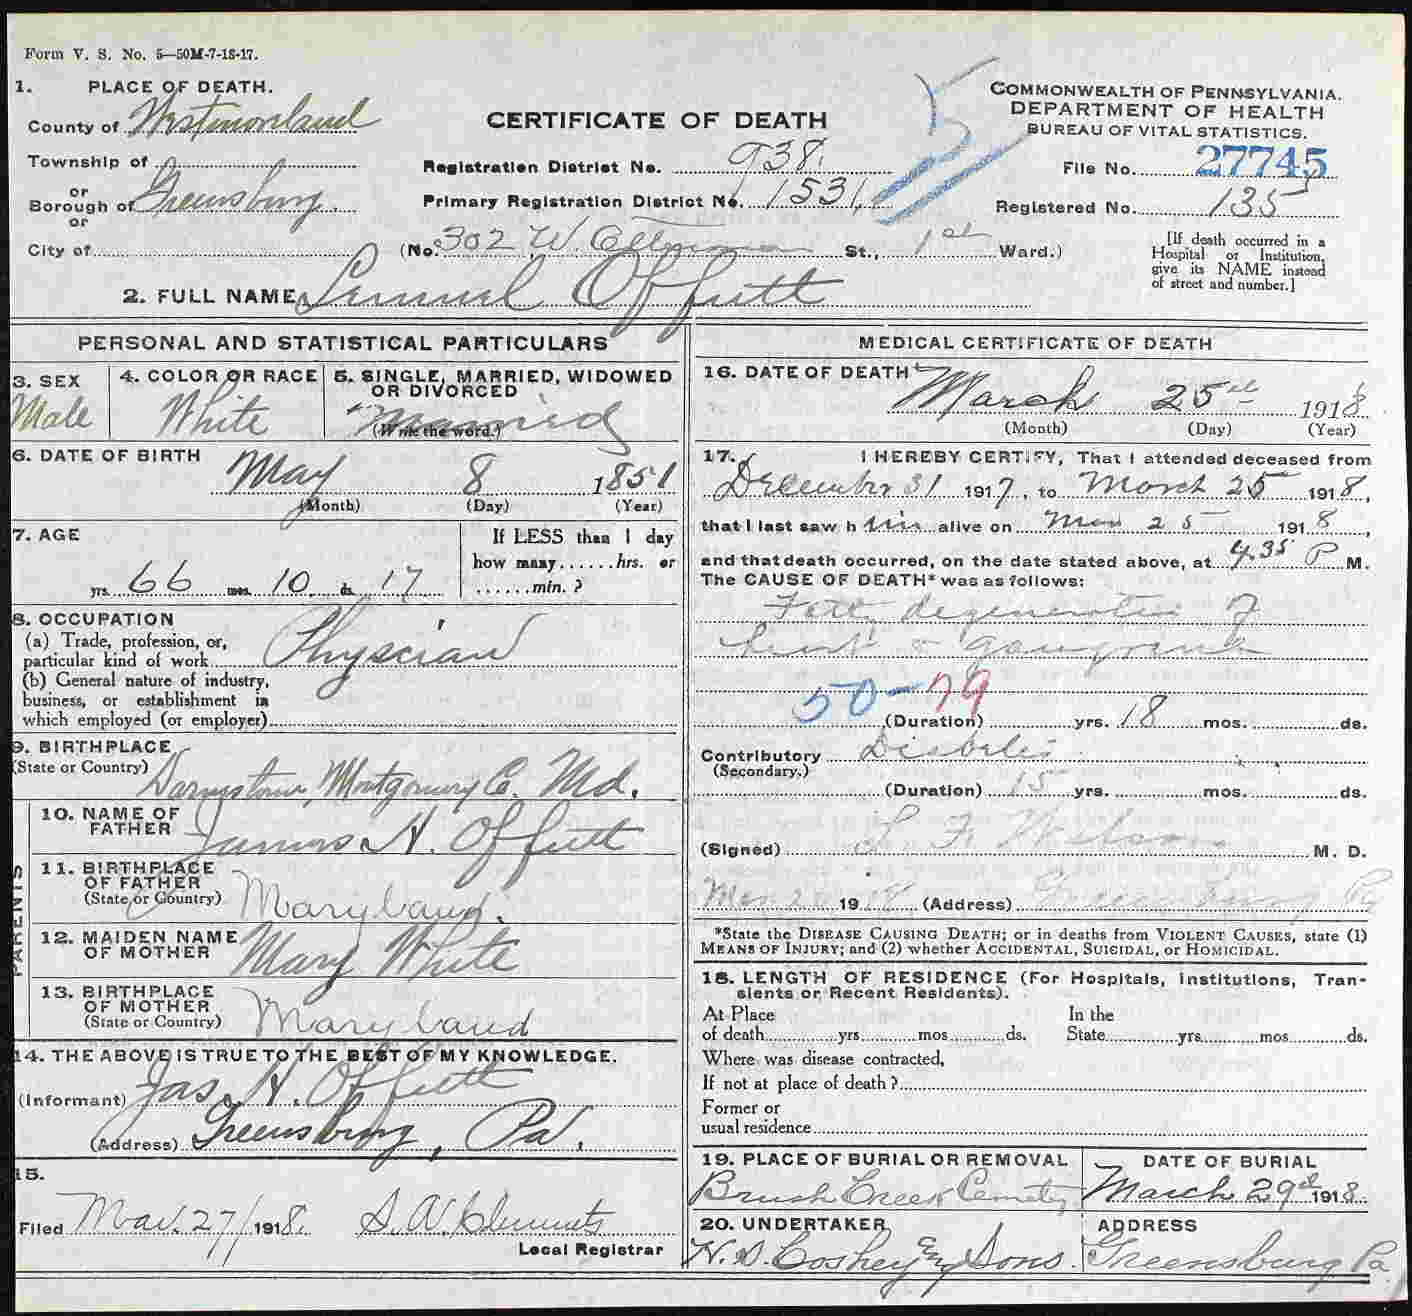 Form V. S. No. 5—50M-7-18-17.
1. PLACE OF DEATH.
County of Westmoreland
Township of
or
Borough of Greensburg.
or
City of
CERTIFICATE OF DEATH
Registration District No. 938.
Primary Registration District No. 1531
(No. 302 W. Otterman St., 1st Ward.)
COMMONWEALTH OF PENNSYLVANIA.
DEPARTMENT OF HEALTH
BUREAU OF VITAL STATISTICS.
File No. 27745
Registered No. 135
[If death occurred in a
Hospital or Institution,
give its NAME instead
of street and number.]
2. FULL NAME Lemuel Offutt
PERSONAL AND STATISTICAL PARTICULARS
3. SEX
Male
4. COLOR OR RACE
White
5. SINGLE, MARRIED, WIDOWED
OR DIVORCED
Married
(Write the word.)
6. DATE OF BIRTH
May 8 1851
(Month) (Day) (Year)
7. AGE
66 yrs. 10 mos. 17 ds.
If LESS than 1 day
how many......hrs. or
......min. ?
8. OCCUPATION
(a) Trade, profession, or,
particular kind of work Physcian
(b) General nature of industry,
business, or establishment in
which employed (or employer)
9. BIRTHPLACE
(State or Country) Darnstown, Montgomery Co. Md.
PARENTS
10. NAME OF
FATHER James H. Offutt
11. BIRTHPLACE
OF FATHER
(State or Country) Maryland.
12. MAIDEN NAME
OF MOTHER Mary White
13. BIRTHPLACE
OF MOTHER
(State or Country) Maryland
14. THE ABOVE IS TRUE TO THE BEST OF MY KNOWLEDGE.
(Informant) Jas. H. Offutt
(Address) Greensburg, Pa.
15.
Filed Mar. 27/ 1918. S. W. Clements
Local Registrar
MEDICAL CERTIFICATE OF DEATH
16. DATE OF DEATH
March 25th 1918
(Month) (Day) (Year)
17. I HEREBY CERTIFY, That I attended deceased from
December 31 1917, to March 25 1918,
that I last saw him alive on Mar 25 1918,
and that death occurred, on the date stated above, at 4.35 P M.
The CAUSE OF DEATH* was as follows:
Fatty degeneration of
heart & Gangrene
50-79
(Duration) yrs. 18 mos. ds.
Contributory Diabetes
(Secondary.)
(Duration) 15 yrs. mos. ds.
(Signed) L. F. Wilson M. D.
Mar 1918 (Address) Greensburg Pa
*State the DISEASE CAUSING DEATH; or in deaths from VIOLENT CAUSES, state (1)
MEANS OF INJURY; and (2) whether ACCIDENTAL, SUICIDAL, or HOMICIDAL.
18. LENGTH OF RESIDENCE (For Hospitals, Institutions, Tran-
sients or Recent Residents).
At Place
of death yrs. mos. ds.
In the
State yrs. mos. ds.
Where was disease contracted,
If not at place of death ?
Former or
usual residence
19. PLACE OF BURIAL OR REMOVAL
Brush Creek Cemetery
DATE OF BURIAL
March 29th 1918.
20. UNDERTAKER
Sons.
ADDRESS
Greensburg Pa.